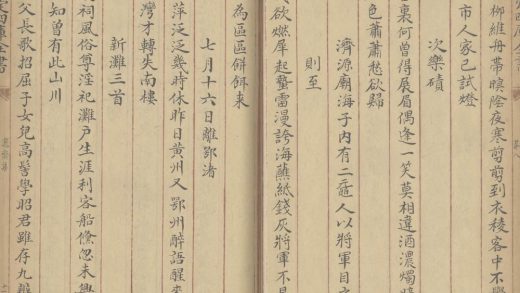 柳維舟帶暝陰夜寒剪剪到衣稜客中不
市人家已試燈
次樂磧
裏何曾得展眉偶逢一笑莫相違酒濃燭
色蕭蕭愁欲歸
濟源廟海子内有二黿人以將軍目
則至
欲燃犀起蟄雷漫誇海蘸紙錢灰將軍不
為區區餅餌來
七月十六日離鄂渚
萍泛泛幾時休昨日黄州又鄂州醉語醒來
灣才轉失南樓
新灘三首
祠風俗尊淫祀灘户生涯利客船儵忽未
知曾有此山川
父長歌招屈子女兒高髻學昭君雖存九
四庫全書